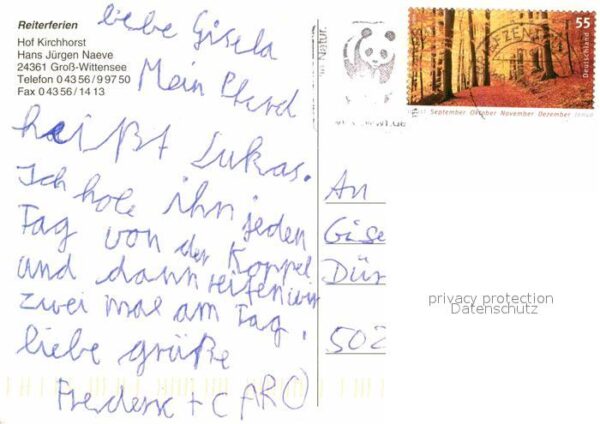 Reiterferien
Hof Kirchhorst
Hans Jürgen Naeve
24361 Groß-Wittensee
Telefon 0 43 56 / 9 97 50
Fax 0 43 56 / 14 13
liebe Gisela
Mein Pferd
heißt Lukas.
Ich hole ihn jeden
Tag von der Koppel
und dann reiten wir
zwei mal am Tag.
liebe grüße
Frederik + CARO
Natur.
55
Deutschland
September Oktober November Dezember
An
Gise
Dür
502
privacy protection
Datenschutz